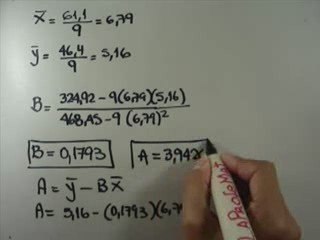 x̄ = 61,1/9 = 6,79
ȳ = 46,4/9 = 5,16
B = 324,92 - 9(6,79)(5,16)/468,45 - 9(6,79)²
B = 0,1793 A = 3,942
A = ȳ - Bx̄
A = 5,16 - (0,1793)(6,79